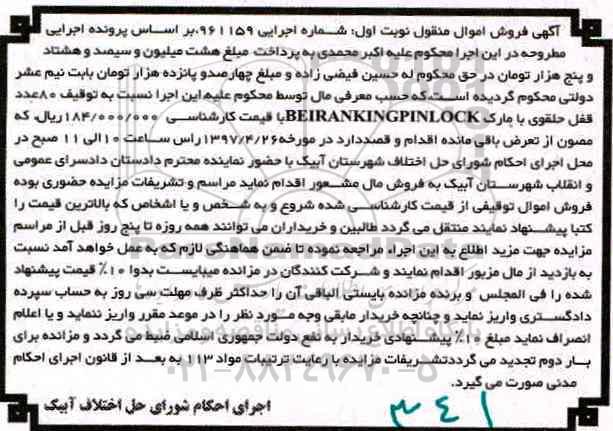 آگهی فروش اموال منقول نوبت اول: شماره اجرایی ۹۶۱۱۵۹.بر اساس پرونده اجرایی
مطروحه در این اجرا محکوم علیه اکبر محمدی به پرداخت مبلغ هشت میلیون و سیصد و هشتاد
و پنج هزار تومان در حق محکوم له حسین فیضی زاده و مبلغ چهارصدو پانزده هزار تومان بابت نیم عشر
دولتی محکوم گردیده است.که حسب معرفی مال توسط محکوم علیه.این اجرا نسبت به توقیف ۸۰عدد
قفل حلقوی با مارک BEIRANKINGPINLOCKبا قیمت کارشناسی ۱۸۴/۰۰۰/۰۰۰ریال، که
مصون از تعرض باقی مانده اقدام و قصددارد در مورخه۱۳۹۷/۴/۲۶راس ساعت ۱۰الی ۱۱ صبح در
محل اجرای احکام شورای حل اختلاف شهرستان آبیک با حضور نماینده محترم دادستان دادسرای عمومی
و انقلاب شهرستان آبیک به فروش مال مشعور اقدام نماید مراسم و تشریفات مزایده حضوری بوده
فروش اموال توقیفی از قیمت کارشناسی شده شروع و به شخص و یا اشخاص که بالاترین قیمت را
کتبا پیشنهاد نمایند منتقل می گردد طالبین و خریداران می توانند همه روزه تا پنج روز قبل از مراسم
مزایده جهت مزید اطلاع به این اجرا، مراجعه نموده تا ضمن هماهنگی لازم که به عمل خواهد آمد نسبت
به بازدید از مال مزبور اقدام نمایند و شرکت کنندگان در مزانده میبایست بدوا ۱۰٪ قیمت پیشنهاد
شده را فی المجلس و برنده مزانده بایستی الباقی آن را حداکثر ظرف مهلت سی روز به حساب سپرده
دادگستری واریز نماید و چنانچه خریدار مابقی وجه مورد نظر را در موعد مقرر واریز ننماید و یا اعلام
انصراف نماید مبلغ ۱۰٪ پیشنهادی خریدار به نفع دولت جمهوری اسلامی ضبط می گردد و مزانده برای
بار دوم تجدید می گرددتشریفات مزایده با رعایت ترتیبات مواد ۱۱۳ به بعد از قانون اجرای احکام
مدنی صورت می گیرد.
اجرای احکام شورای حل اختلاف آبیک
۳۴۱
پایگاه اطلاع رسانی مناقصه و مزایده
۰۲۱-۸۸۳۴۹۶۷۰-۵